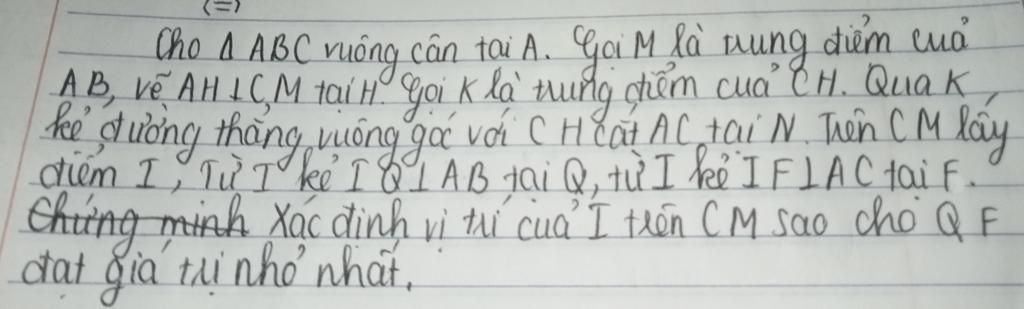 (=)
Cho Δ ABC vuông cân tại A. Gọi M là trung điểm của
AB, vẽ AH⊥C,M tại H. Gọi K là trung điểm của CH. Qua K
kẻ đường thẳng vuông góc với CH cắt AC tại N. Trên CM lấy
điểm I, Từ I kẻ IQ⊥AB tại Q, từ I kẻ IF⊥AC tại F.
Chứng minh Xác định vị trí của I trên CM sao cho QF
đạt giá trị nhỏ nhất.